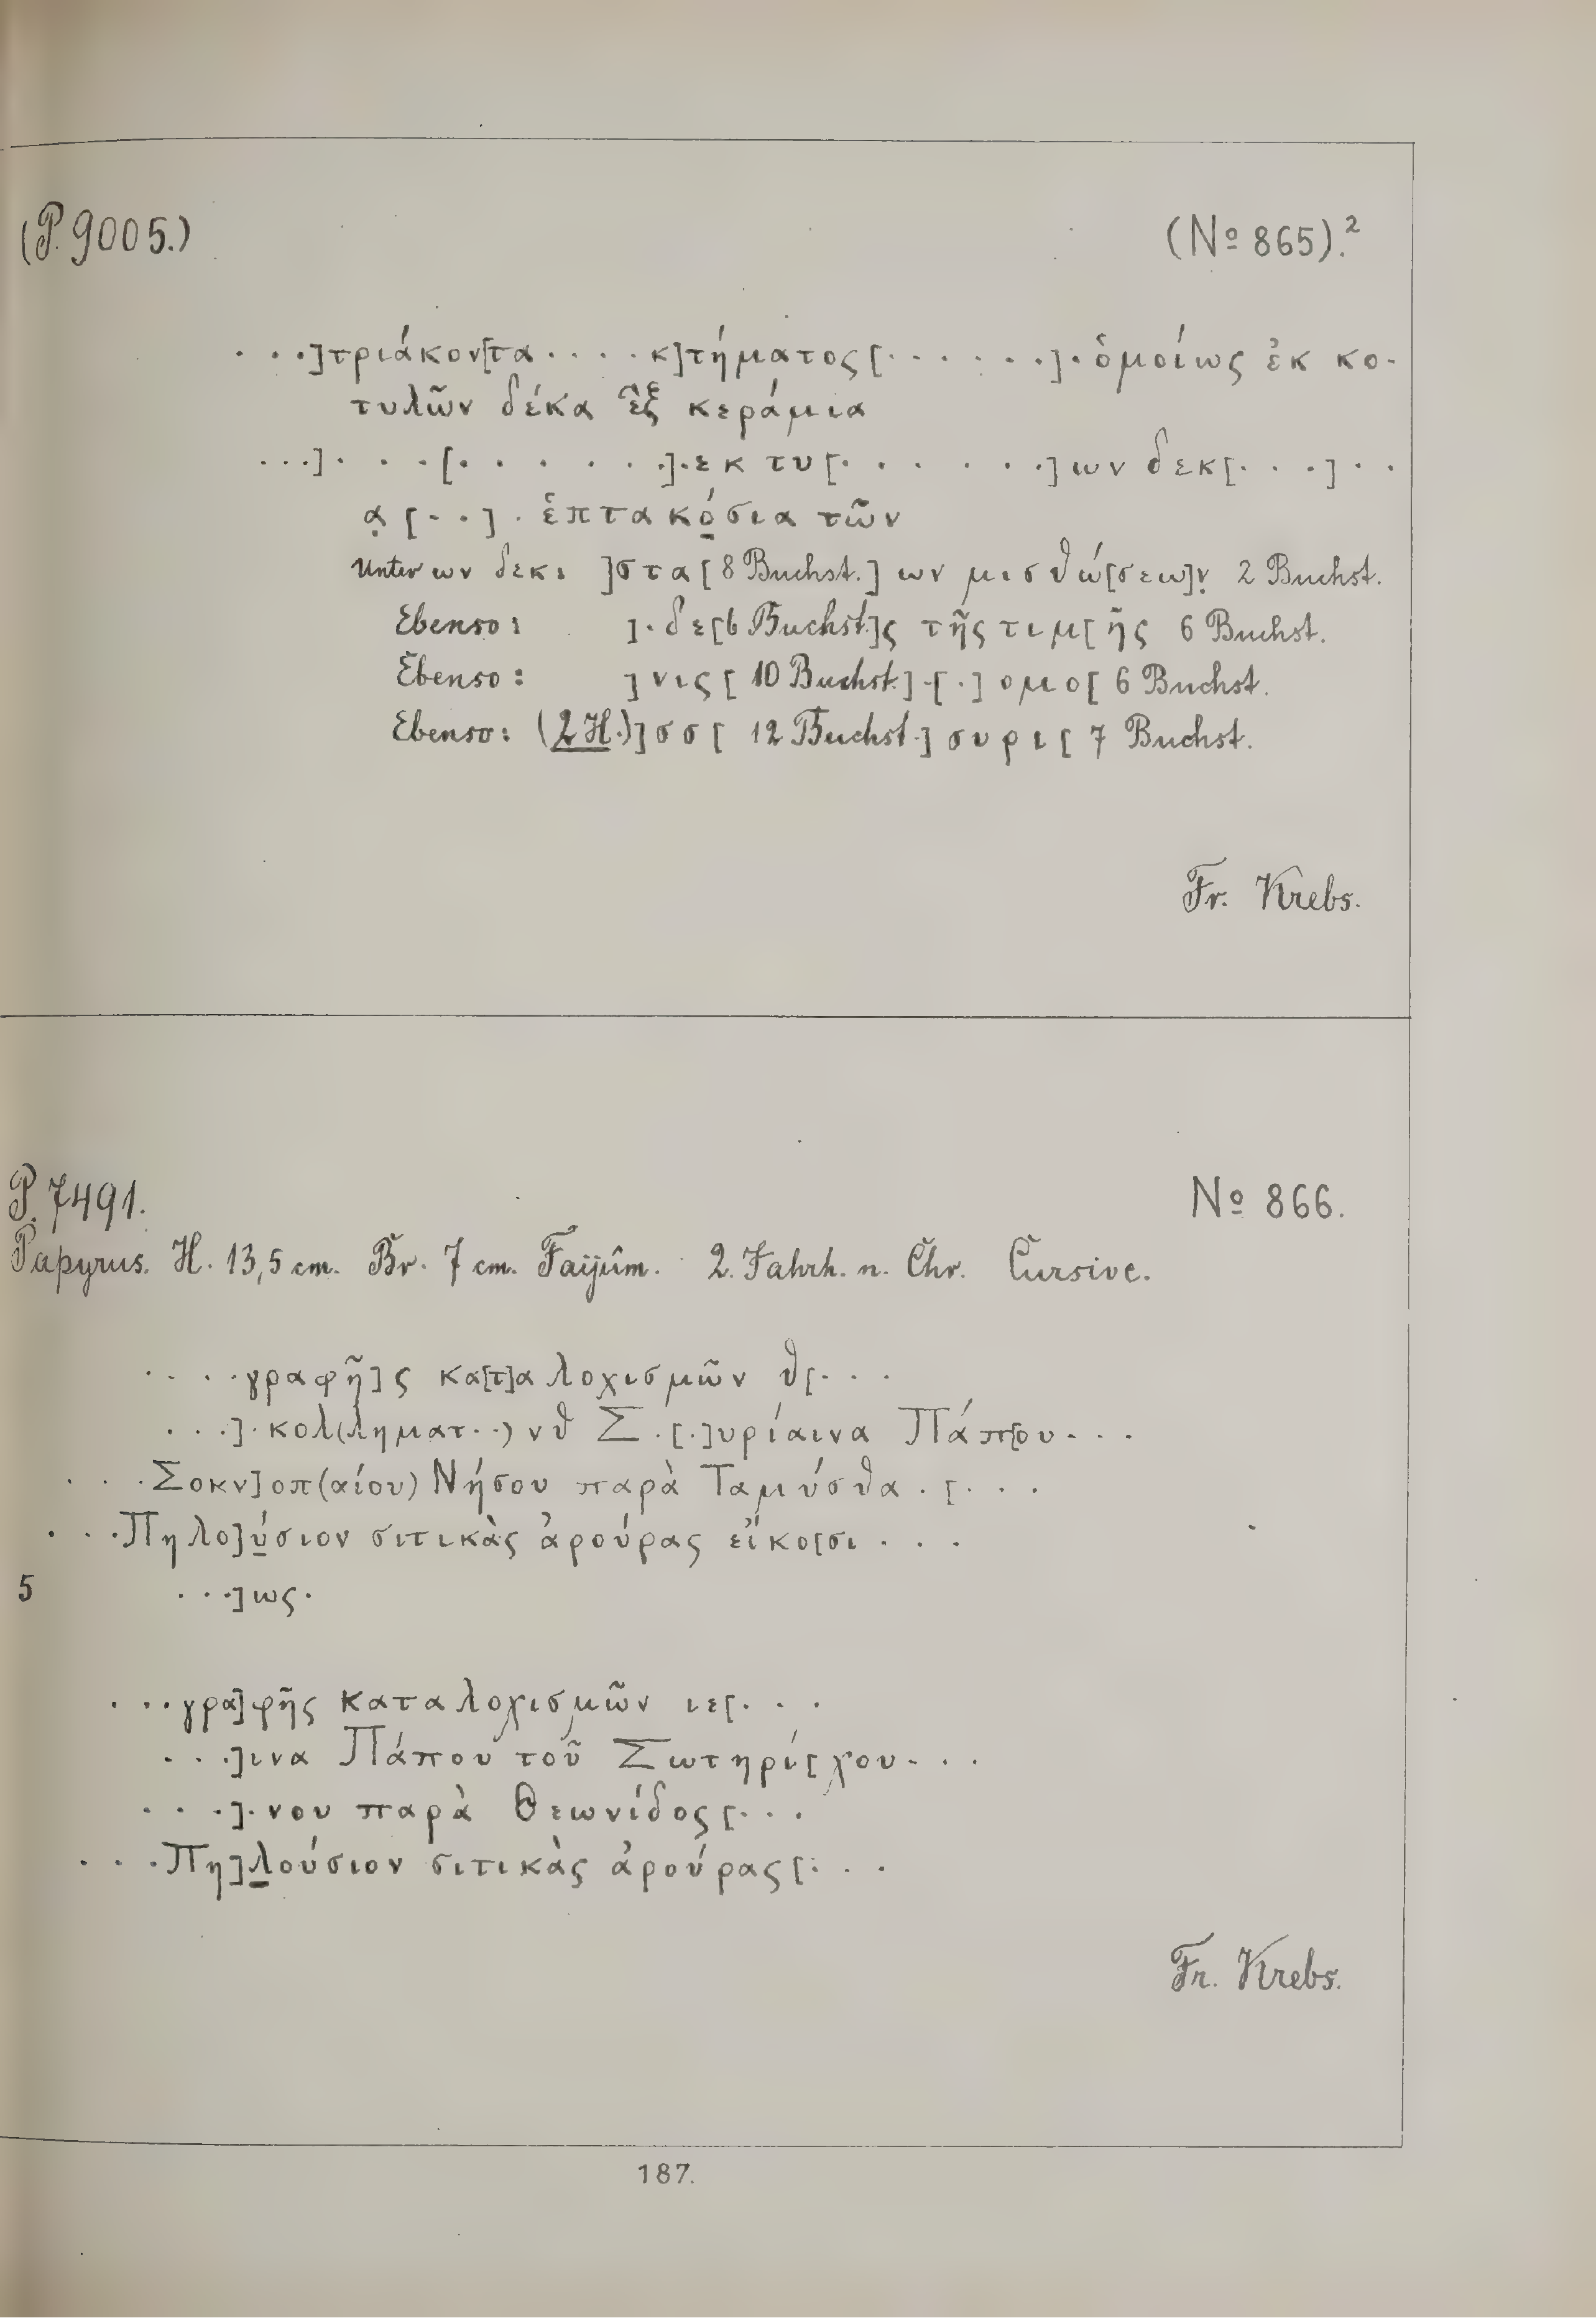 (P. 9005.) (No 865).²
· · ·]τριάκον[τα · · · · κ]τήματος[· · · · · · ·]· ὁμοίως ἐκ κο-
τυλῶν δέκα ἓξ κεράμια
· · ·]· · ·[· · · · · ·]·εκ τυ[· · · · · ·]ων δεκ[· · ·]· ·
α̣ [· ·] · ἑπτακό̲σια τῶν
Unter ων δεκ: ]στα[ 8 Buchst.] ων μισθώ[σεω]ν̣ 2 Buchst.
Ebenso: ]· δε[6 Buchst.]ς τῆς τιμ[ῆς 6 Buchst.
Ebenso: ]νις[ 10 Buchst.]·[·] ομο[ 6 Buchst.
Ebenso: (2 H.)]σσ[ 12 Buchst.] συρι[ 7 Buchst.
Fr. Krebs.
P. 7491. No 866.
Papyrus. H. 13,5 cm. Br. 7 cm. Faijûm. 2. Jahrh. n. Chr. Cursive.
· · · ·γραφῆ]ς κα[τ]αλοχισμῶν θ[· · ·
· · ·]· κολ(ληματ··) νθ Σ·[·]υρίαινα Πάπ[ου · · ·
· · ·Σοκν]οπ(αίου) Νήσου παρὰ Ταμύσθα · [· · ·
· · ·Πηλο]ύ̲σιον σιτικὰς ἀρούρας εἴκο[σι · · ·
5 · · ·]ως·
· · ·γρα]φῆς καταλοχισμῶν ιε[· · ·
· · ·]ινα Πάπου τοῦ Σωτηρί[χου · · ·
· · ·]· νου παρὰ Θεωνίδος[· · ·
· · ·Πη]λ̲ούσιον σιτικὰς ἀρούρας[· · ·
Fr. Krebs.
187.